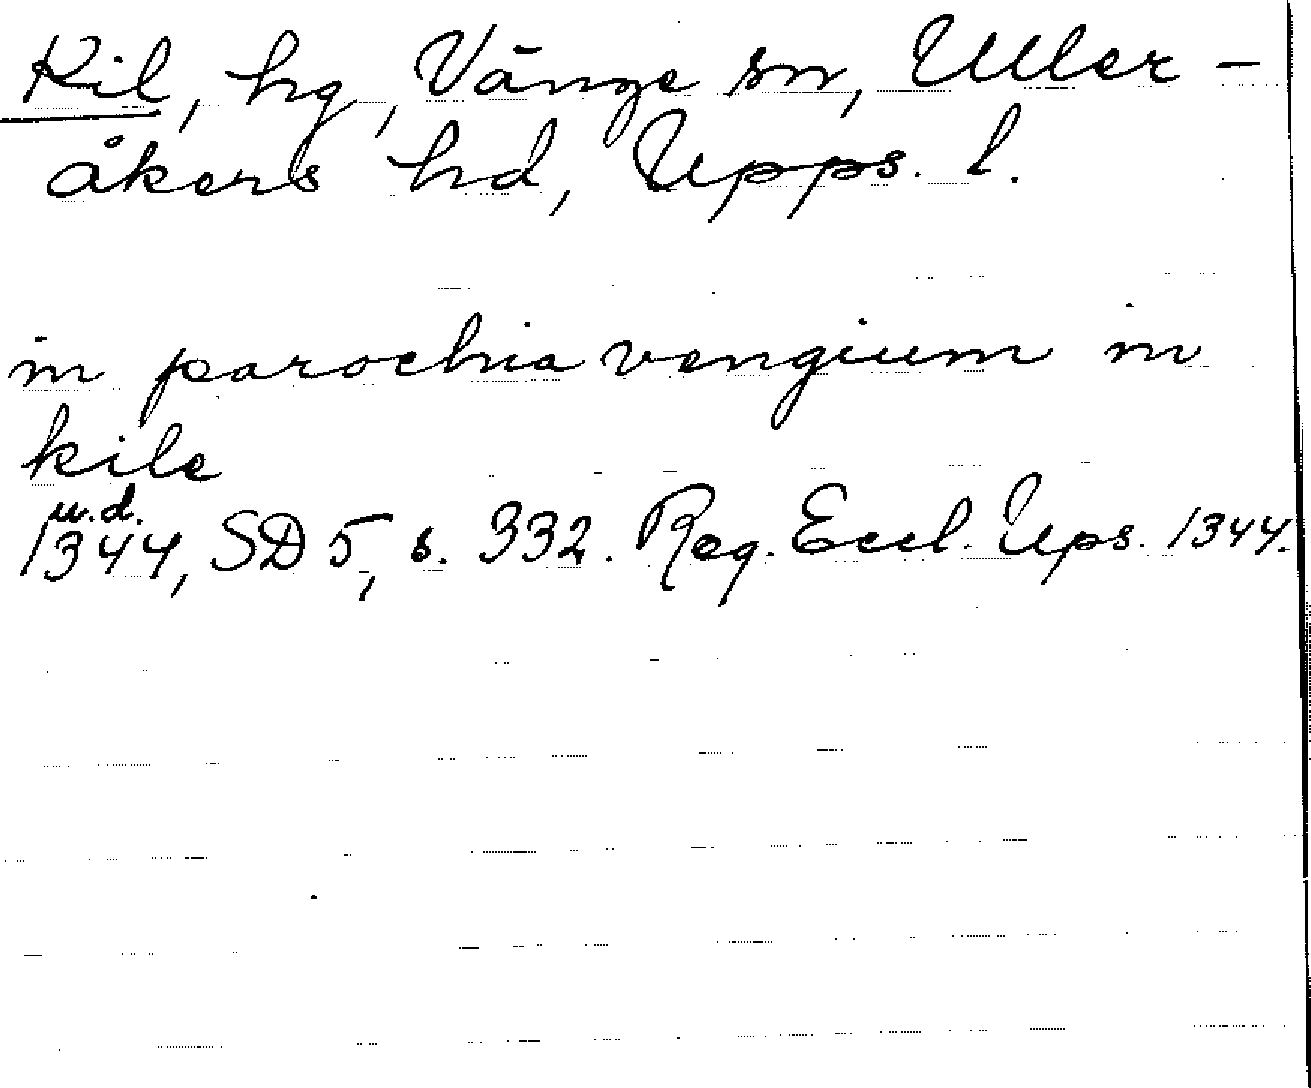 Kil, hg, Vänge sn, Uller-
åkers hd, Upps. l.
in parochia vengium in
kile
u.d.
1344, SD 5, s. 332. Reg. Eccl. Ups. 1344.